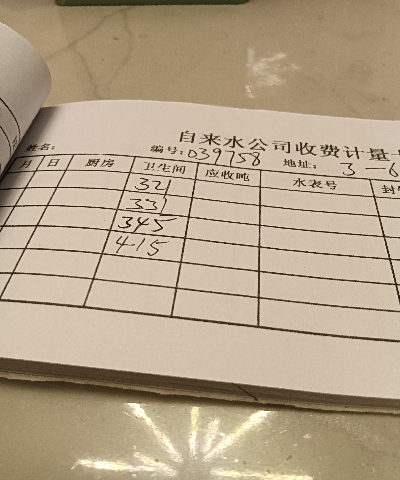 自来水公司收费计量
姓名： 编号：D39758 地址：3-6
月 日 厨房 卫生间 应收吨 水表号 封
321
331
345
415